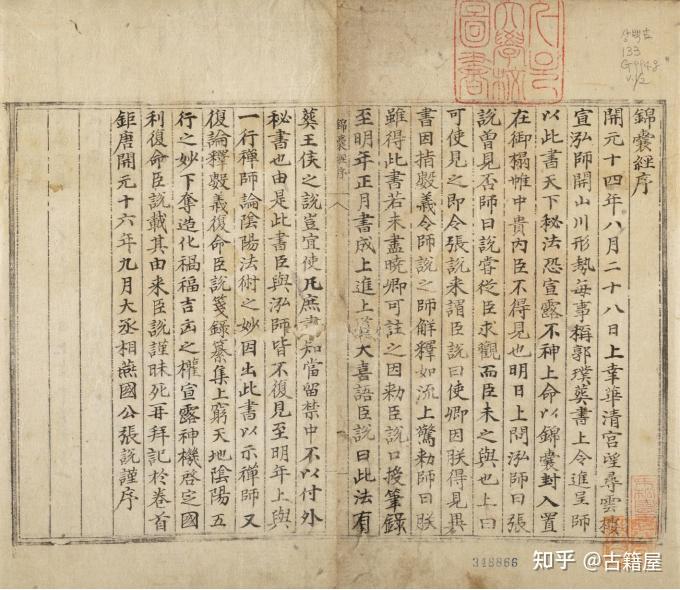 錦囊經序
開元十四年八月二十八日上幸華清宮望尋雲樓
宣泓師開山川形勢每事稱郭璞葬書上令進呈師
以此書天下秘法恐宣露不神上命以錦囊封入置
在御榻帷中貴內臣不得見也明日上問泓師曰張
說曾見否師曰說嘗從臣求觀而臣未之與也上曰
可使見之即令張說来謂臣說曰使卿因朕得見異
書因指數義令師說之師解釋如流上驚勅師曰朕
雖得此書若未盡曉卿可註之因勅臣說口授筆錄
至明年正月書成上進上大喜語臣說曰此法有
錦囊經序
葬王侯之說豈宜使凡庶知當留禁中不以付外
秘書也由是此書臣與泓師皆不復見至明年上與
一行禪師論陰陽法術之妙因出此書以示禪師又
復論釋數義復命臣說箋錄纂集上窮天地陰陽五
行之妙下奪造化禍福吉凶之權宣露神機啓定國
利復命臣說載其由来臣說謹昧死再拜記於卷首
鉅唐開元十六年九月大丞相燕國公張說謹序
圖書
133
348866
知乎 @古籍屋